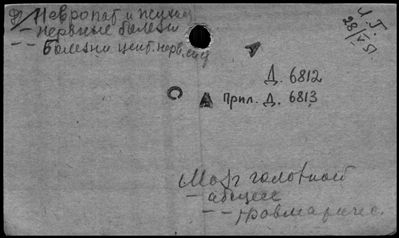 Ф/ Невропат и психиат
— нервные болезни
— — болезни цент. нерв. сис
И. Г.
28/V 51
Д. 6812
Прил. Д. 6813
Мозг головной
— абсцесс
— — травматичес.